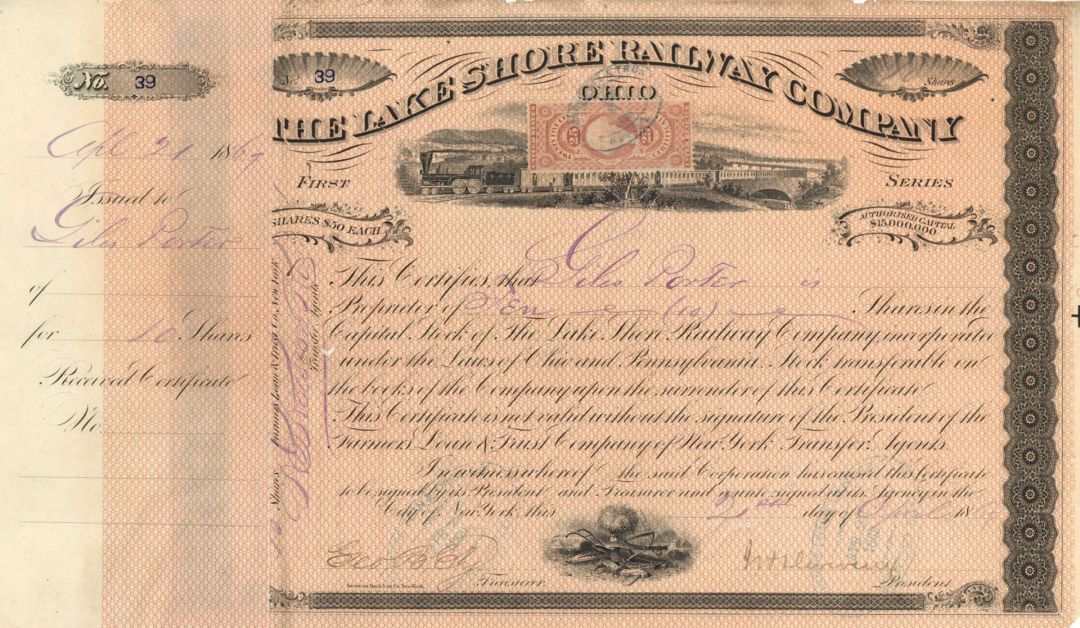 No. 39
Apl 21 1869
Issued to
Giles Porter
of
for 10 Shares
Received Certificate
No.
No. 39
10 Shares
THE LAKE SHORE RAILWAY COMPANY
OHIO
FIRST
SERIES
SHARES $50 EACH
AUTHORISED CAPITAL
$15,000,000
This Certifies, that Giles Porter is
Proprietor of Ten (10) Shares in the
Capital Stock of The Lake Shore Railway Company, incorporated
under the Laws of Ohio and Pennsylvania. Stock transferable on
the books of the Company upon the surrender of this Certificate
This Certificate is not valid without the signature of the President of the
Farmers Loan & Trust Company of New York Transfer Agents.
In witness whereof the said Corporation has caused this Certificate
to be signed by its President and Treasurer and countersigned at its Agency in the
City of New York, this 21st day of April 1869
Geo B Ely
Treasurer.
President.
American Bank Note Co. New York.
10 Shares
Farmers Loan & Trust Co. New York
Transfer Agents